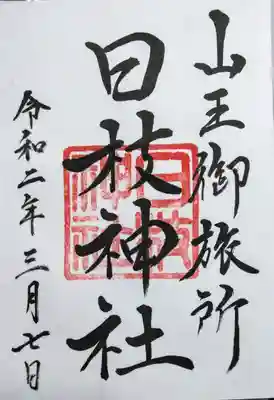 山王御旅所
日枝神社
令和二年三月七日
日枝神社